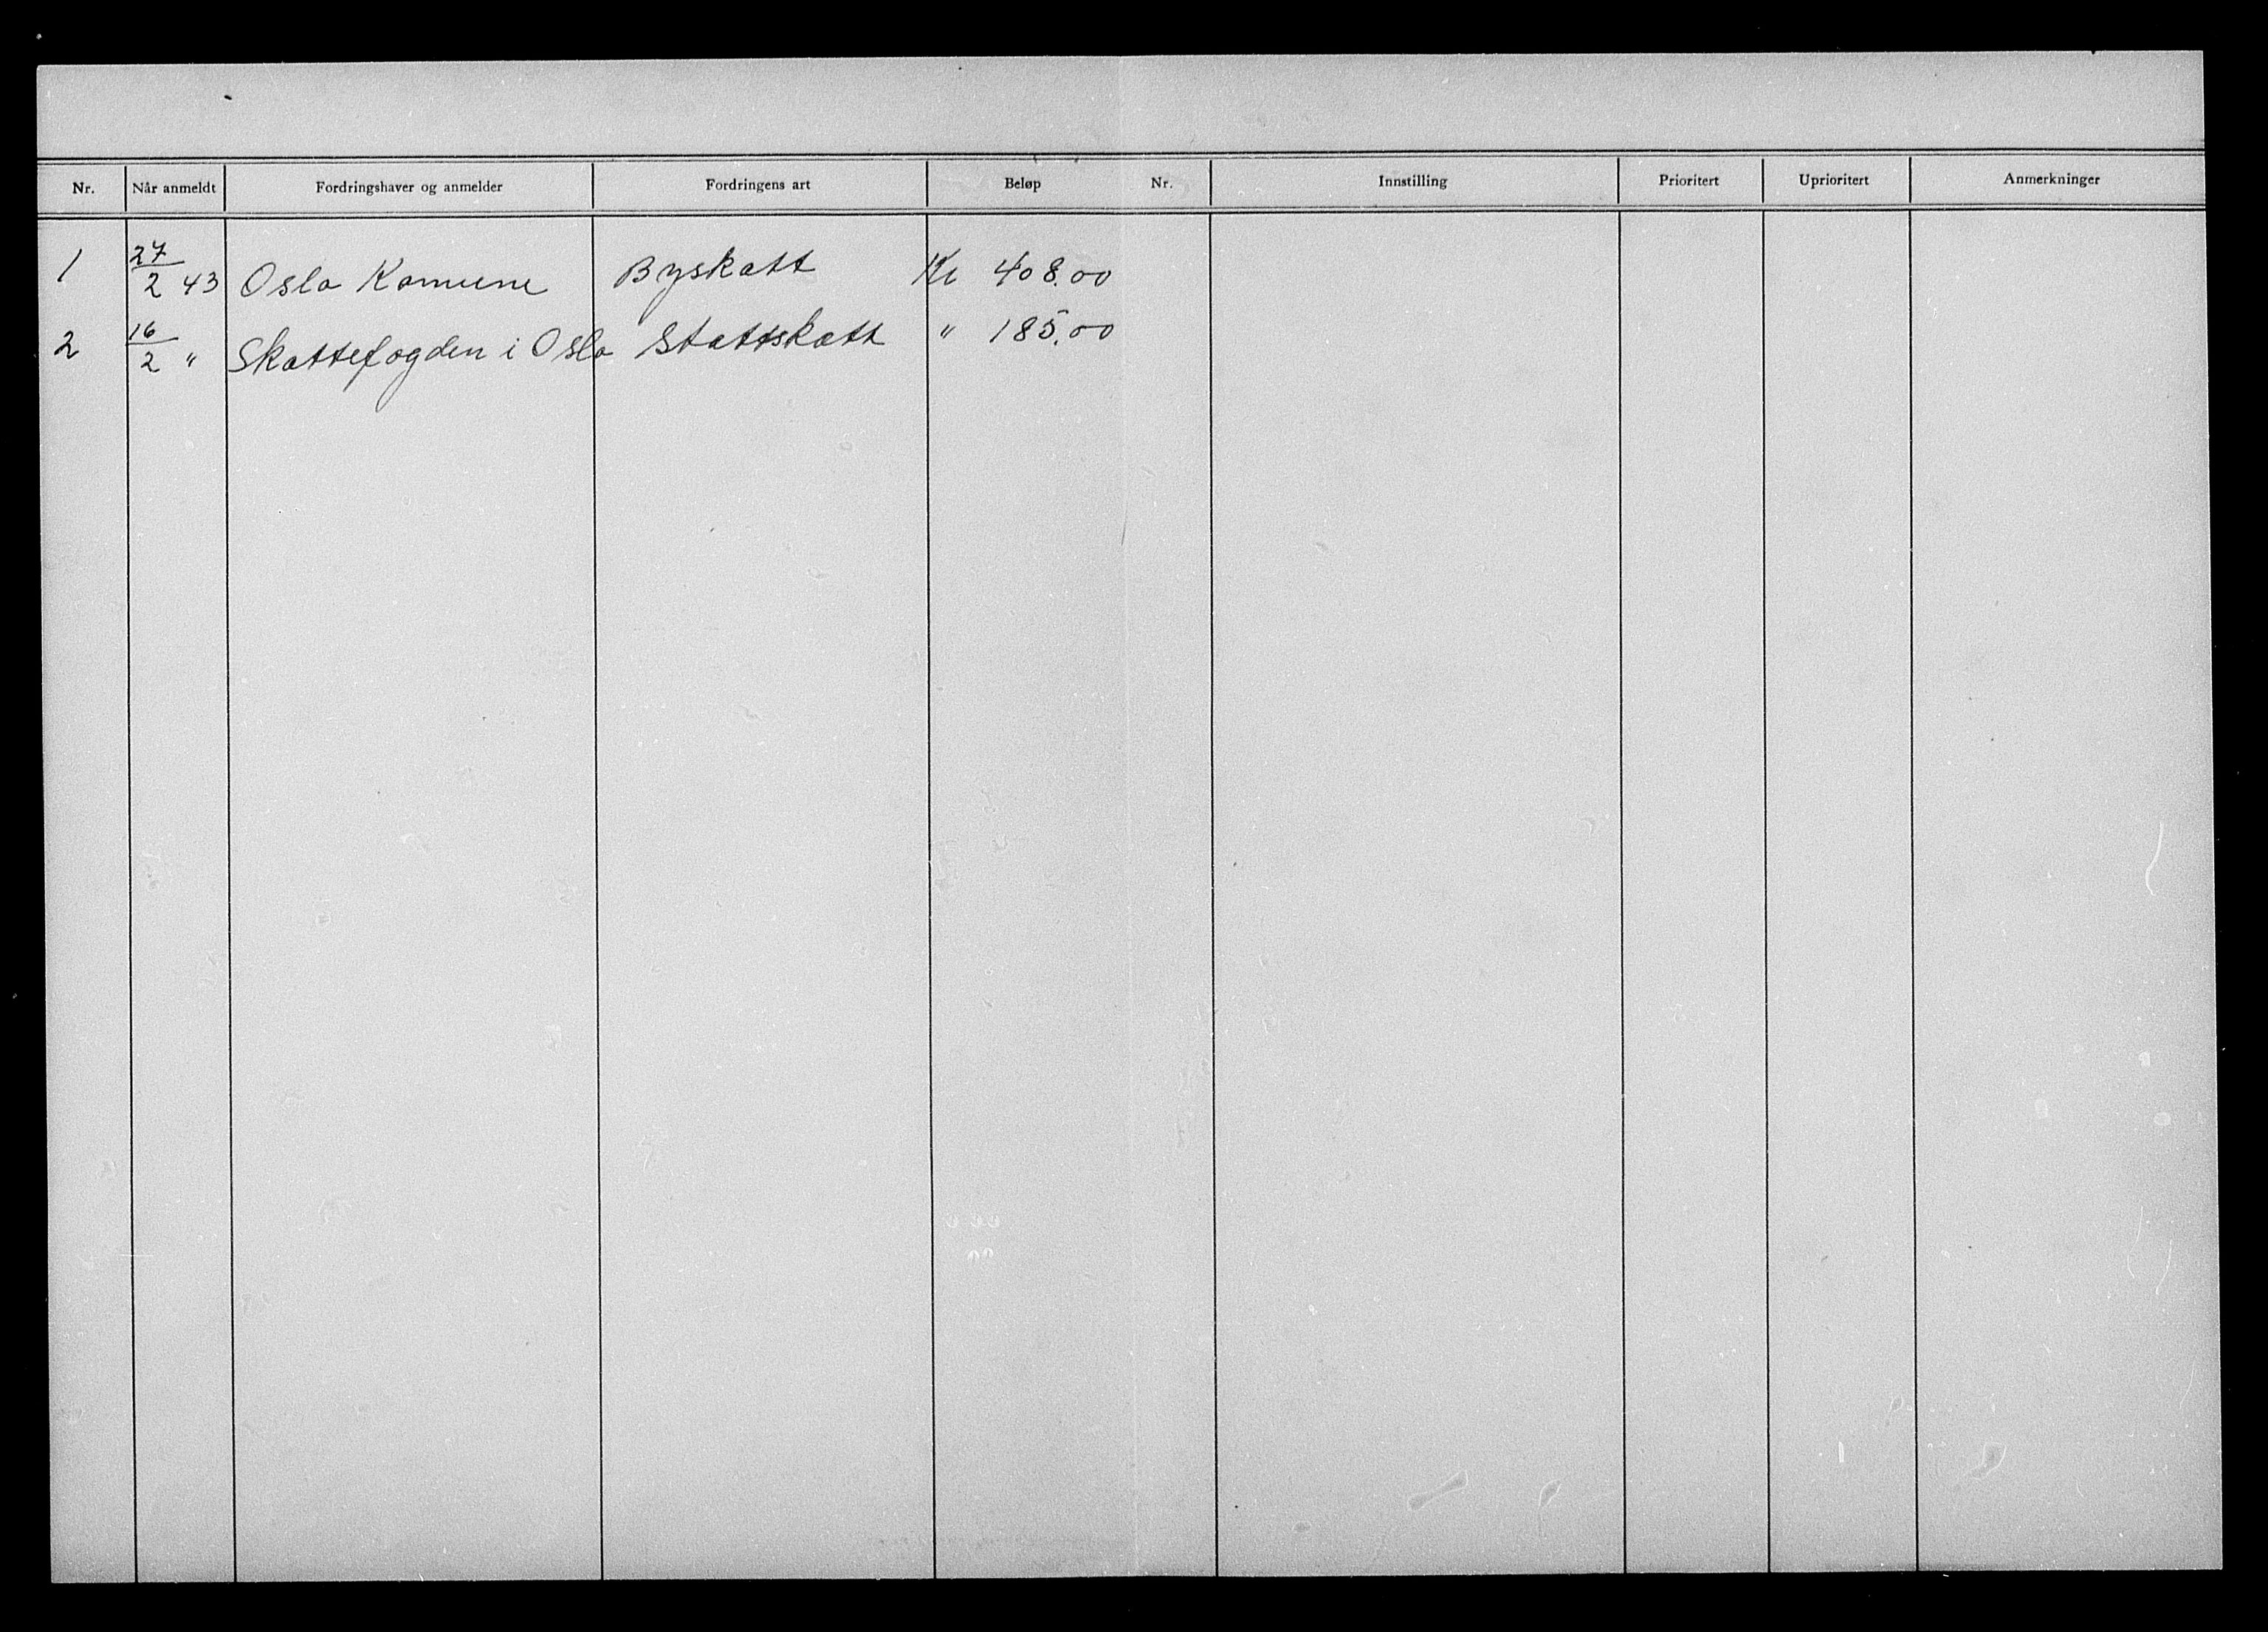 Nr. Når anmeldt Fordringshaver og anmelder Fordringens art Beløp Nr. Innstilling Prioritert Uprioritert Anmerkninger
1 27/2 43 Oslo Komune Byskatt Kr 408.00
2 16/2 " Skattefogden i Oslo Stattskatt " 185.00